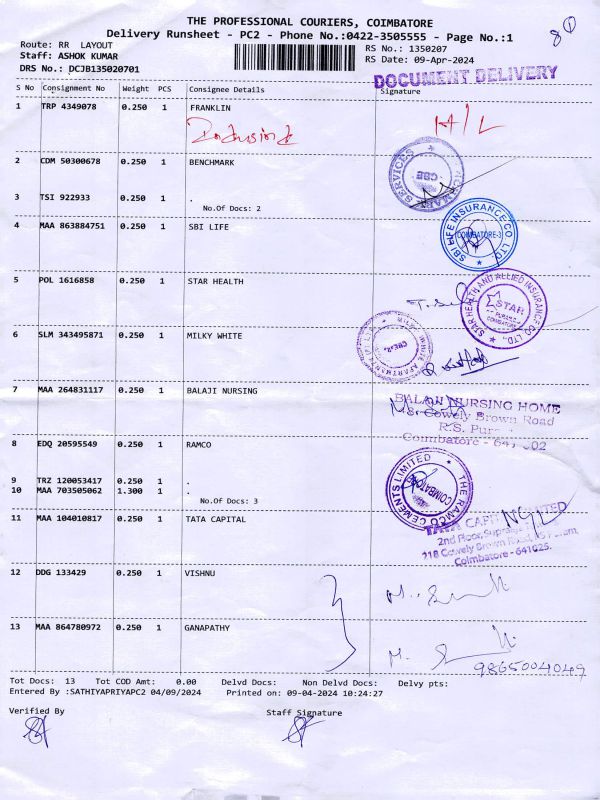 THE PROFESSIONAL COURIERS, COIMBATORE
Delivery Runsheet - PC2 - Phone No.:0422-3505555 - Page No.:1
Route: RR LAYOUT
Staff: ASHOK KUMAR
DRS No.: DCJB135020701
RS No.: 1350207
RS Date: 09-Apr-2024
8 1
DOCUMENT DELIVERY
S No Consignment No Weight PCS Consignee Details Signature
1 TRP 4349078 0.250 1 FRANKLIN
H/L
2 CDM 50300678 0.250 1 BENCHMARK
SERVICES
CBE
3 TSI 922933 0.250 1 .
No.Of Docs: 2
4 MAA 863884751 0.250 1 SBI LIFE
SBI LIFE INSURANCE CO. LTD.
COIMBATORE-3
5 POL 1616858 0.250 1 STAR HEALTH
STAR HEALTH AND ALLIED INSURANCE CO LTD.,
STAR
COIMBATORE
6 SLM 343495871 0.250 1 MILKY WHITE
7 MAA 264831117 0.250 1 BALAJI NURSING
BALAJI NURSING HOME
Cowely Brown Road
R.S. Pur
Coimbatore - 641 002
8 EDQ 20595549 0.250 1 RAMCO
THE RAMCO CEMENTS LIMITED
COIMBATORE
9 TRZ 120053417 0.250 1 .
10 MAA 703505062 1.300 1 .
No.Of Docs: 3
11 MAA 104010817 0.250 1 TATA CAPITAL
TATA CAPITAL LIMITED
2nd Floor,
218 Cowely Brown Road, RS Puram,
Coimbatore - 641025.
12 DDG 133429 0.250 1 VISHNU
13 MAA 864780972 0.250 1 GANAPATHY
9865004049
Tot Docs: 13 Tot COD Amt: 0.00 Delvd Docs: Non Delvd Docs: Delvy pts:
Entered By :SATHIYAPRIYAPC2 04/09/2024 Printed on: 09-04-2024 10:24:27
Verified By Staff Signature